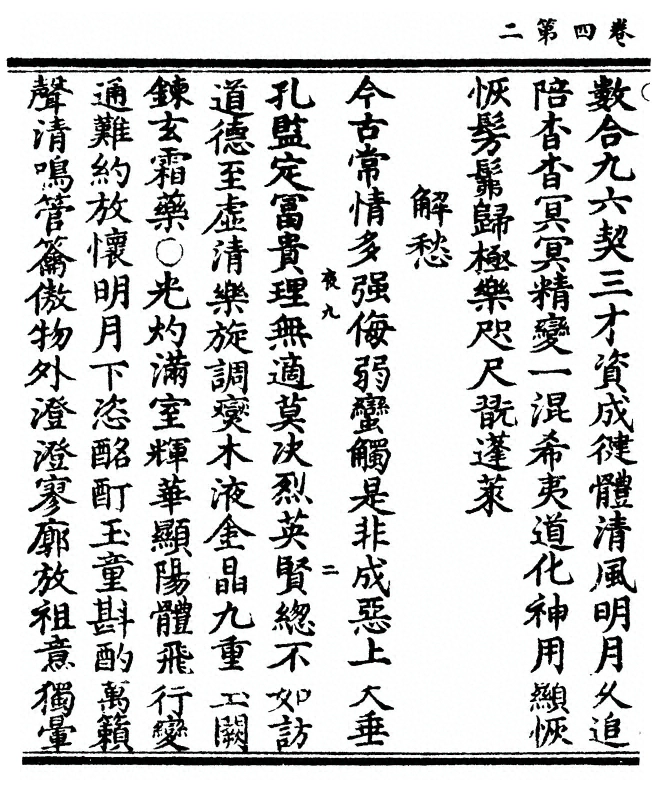 卷四第二
數合九六契三才資成健體清風明月久追
陪杳杳冥冥精變一混希夷道化神用顯恢
恢髣髴歸極樂咫尺翫蓬萊
解愁
今古常情多强侮弱蠻觸是非成惡上大垂
夜九
二
孔監定冨貴理無適莫决烈英賢緫不如訪
道德至虛清樂旋調爕木液金晶九重玉闕
鍊玄霜藥〇光灼滿室輝華顯陽體飛行變
通難約放懷明月下恣酩酊玉童斟酌萬籟
聲清鳴管籥傲物外澄澄寥廓放祖意獨暈